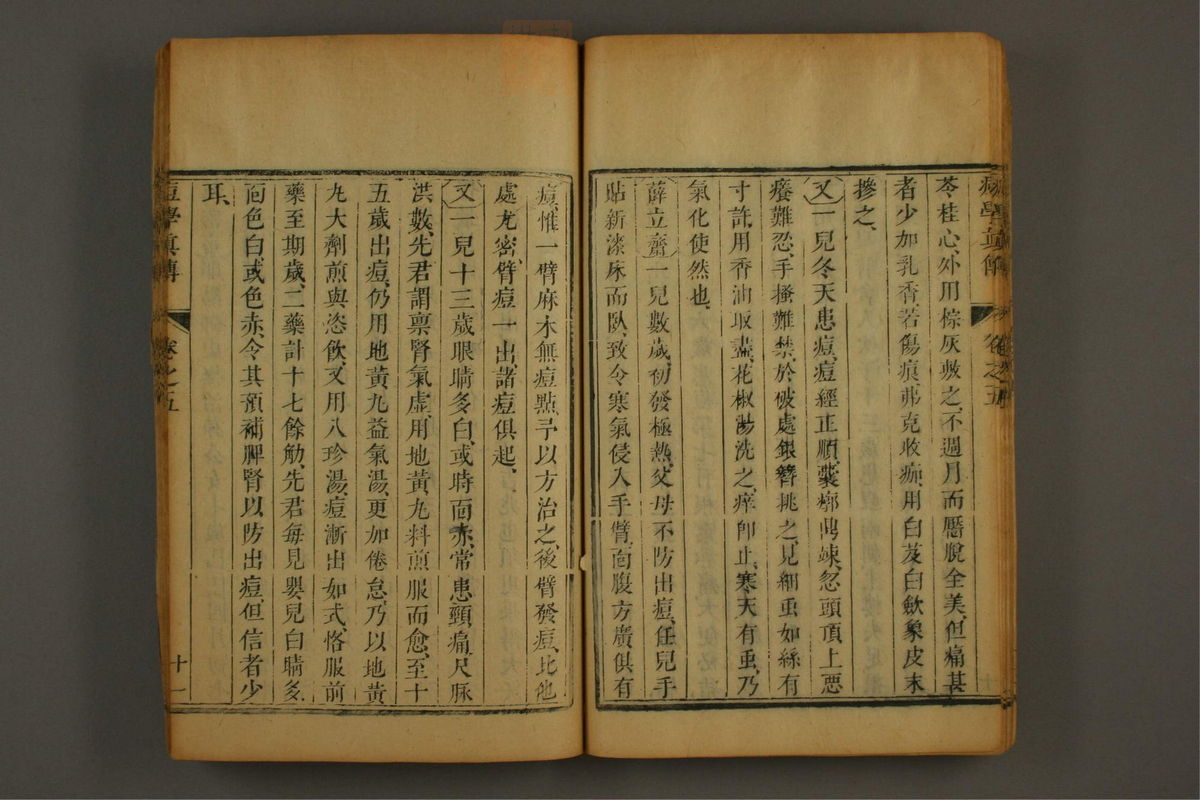 痘學眞傳 卷之五
苓桂心、外用棕灰敷之、不週月而靨脫全美、但痛甚
者少加乳香、若傷痕弗克收痂、用白芨白歛象皮末
摻之、
又一兒冬天患痘、痘經正順、囊廓鼎竦、忽頭頂上惡
癢難忍、手搔難禁、於破處銀簪挑之、見細虫如絲有
寸許、用香油取盡、花椒湯洗之、痒卽止、寒天有虫、乃
氣化使然也、
薛立齋一兒數歲、初發極熱、父母不防出痘、任兒手
貼新漆床而臥、致令寒氣侵入手臂、面腹方廣、俱有
痘、惟一臂麻木無痘點、予以方治之、後臂發痘、比他
處尤密、臂痘一出、諸痘俱起、
又一兒十三歲眼睛多白、或時面赤、常患頸痛、尺脉
洪數、先君謂禀腎氣虛、用地黃丸料煎服而愈、至十
五歲出痘、仍用地黃丸益氣湯、更加倦怠、乃以地黃
九大劑煎與恣飲、又用八珍湯、痘漸出如式、恪服前
藥至期歲、二藥計十七餘觔、先君每見嬰兒白睛多、
面色白或色赤、令其預補脾腎以防出痘、但信者少
耳、
痘學眞傳 卷之五 十一